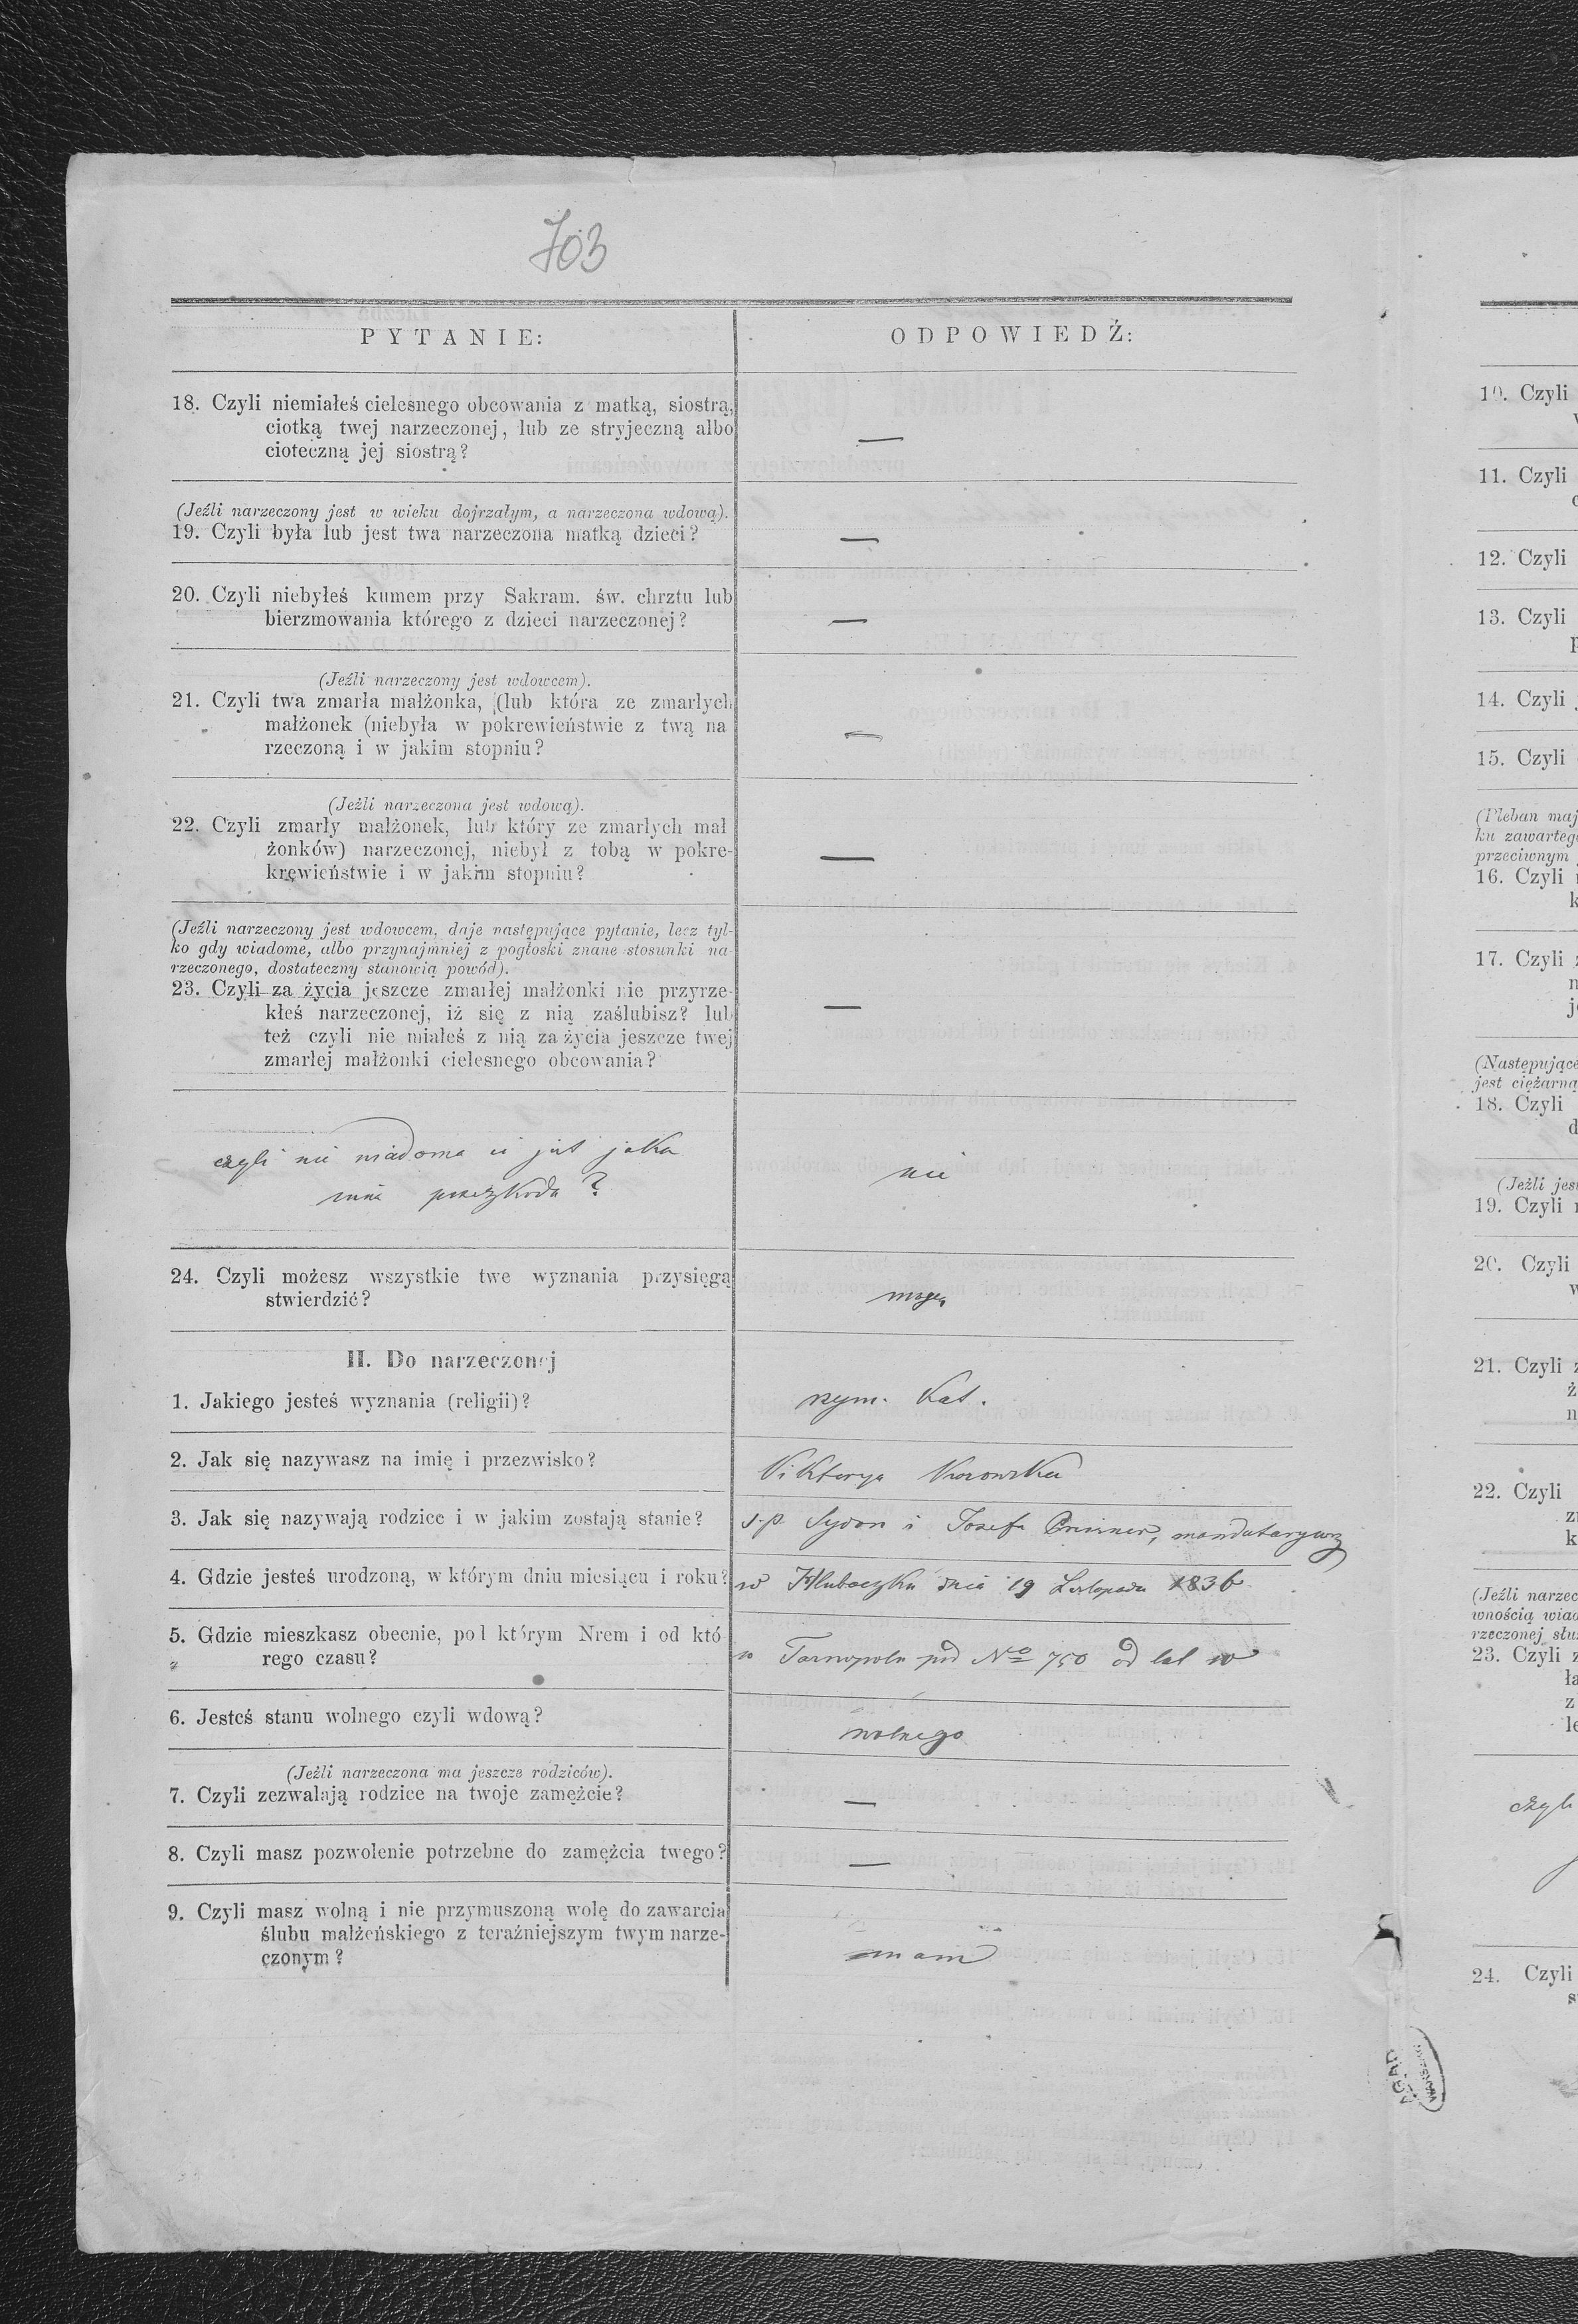 703
PYTANIE:
ODPOWIEDŹ:
18. Czyli niemiałeś cielesnego obcowania z matką, siostrą,
ciotką twej narzeczonej, lub ze stryjeczną albo
cioteczną jej siostrą?
—
(Jeźli narzeczony jest w wieku dojrzałym, a narzeczona wdową).
19. Czyli była lub jest twa narzeczona matką dzieci?
—
20. Czyli niebyłeś kumem przy Sakram. św. chrztu lub
bierzmowania którego z dzieci narzeczonej?
—
(Jeźli narzeczony jest wdowcem).
21. Czyli twa zmarła małżonka, (lub która ze zmarłych
małżonek (niebyła w pokrewieństwie z twą na
rzeczoną i w jakim stopniu?
—
(Jeźli narzeczona jest wdową).
22. Czyli zmarły małżonek, lub który ze zmarłych mał
żonków) narzeczonej, niebył z tobą w pokre-
krewieństwie i w jakim stopniu?
—
(Jeźli narzeczony jest wdowcem, daje następujące pytanie, lecz tyl-
ko gdy wiadome, albo przynajmniej z pogłoski znane stosunki na-
rzeczonego, dostateczny stanowią powód).
23. Czyli za życia jeszcze zmarłej małżonki nie przyrze-
kłeś narzeczonej, iż się z nią zaślubisz? lub
też czyli nie miałeś z nią za życia jeszcze twej
zmarłej małżonki cielesnego obcowania?
—
czyli nie wiadoma ci jest jaka
inna przeszkoda?
nie
24. Czyli możesz wszystkie twe wyznania przysięgą
stwierdzić?
mogę
II. Do narzeczonej
1. Jakiego jesteś wyznania (religii)?
rzym. kat.
2. Jak się nazywasz na imię i przezwisko?
Viktorya
3. Jak się nazywają rodzice i w jakim zostają stanie?
s.p. Sydon i Josefa mandataryusz
4. Gdzie jesteś urodzoną, w którym dniu miesiącu i roku?
w Hluboczku dnia 19 Listopada 1836
5. Gdzie mieszkasz obecnie, pod którym Nrem i od któ
rego czasu?
w Tarnopolu pod No 750 od lat
6. Jesteś stanu wolnego czyli wdową?
wolnego
(Jeźli narzeczona ma jeszcze rodziców).
7. Czyli zezwalają rodzice na twoje zamężcie?
—
8. Czyli masz pozwolenie potrzebne do zamężcia twego?
—
9. Czyli masz wolną i nie przymuszoną wolę do zawarcia
ślubu małżeńskiego z teraźniejszym twym narze-
czonym?
mam
10. Czyli
11. Czyli
12. Czyli
13. Czyli
14. Czyli
15. Czyli
(Pleban maj
ku zawarteg
przeciwnym
16. Czyli
k
17. Czyli
(Następujące
jest ciężarną
18. Czyli
d
(Jeźli jes
19. Czyli
20. Czyli
w
21. Czyli z
ż
n
22. Czyli
z
k
(Jeźli narzec
wnością wiad
rzeczonej słu
23. Czyli z
ła
z
le
czyli
24. Czyli
s
AGAD
WARSZAWA